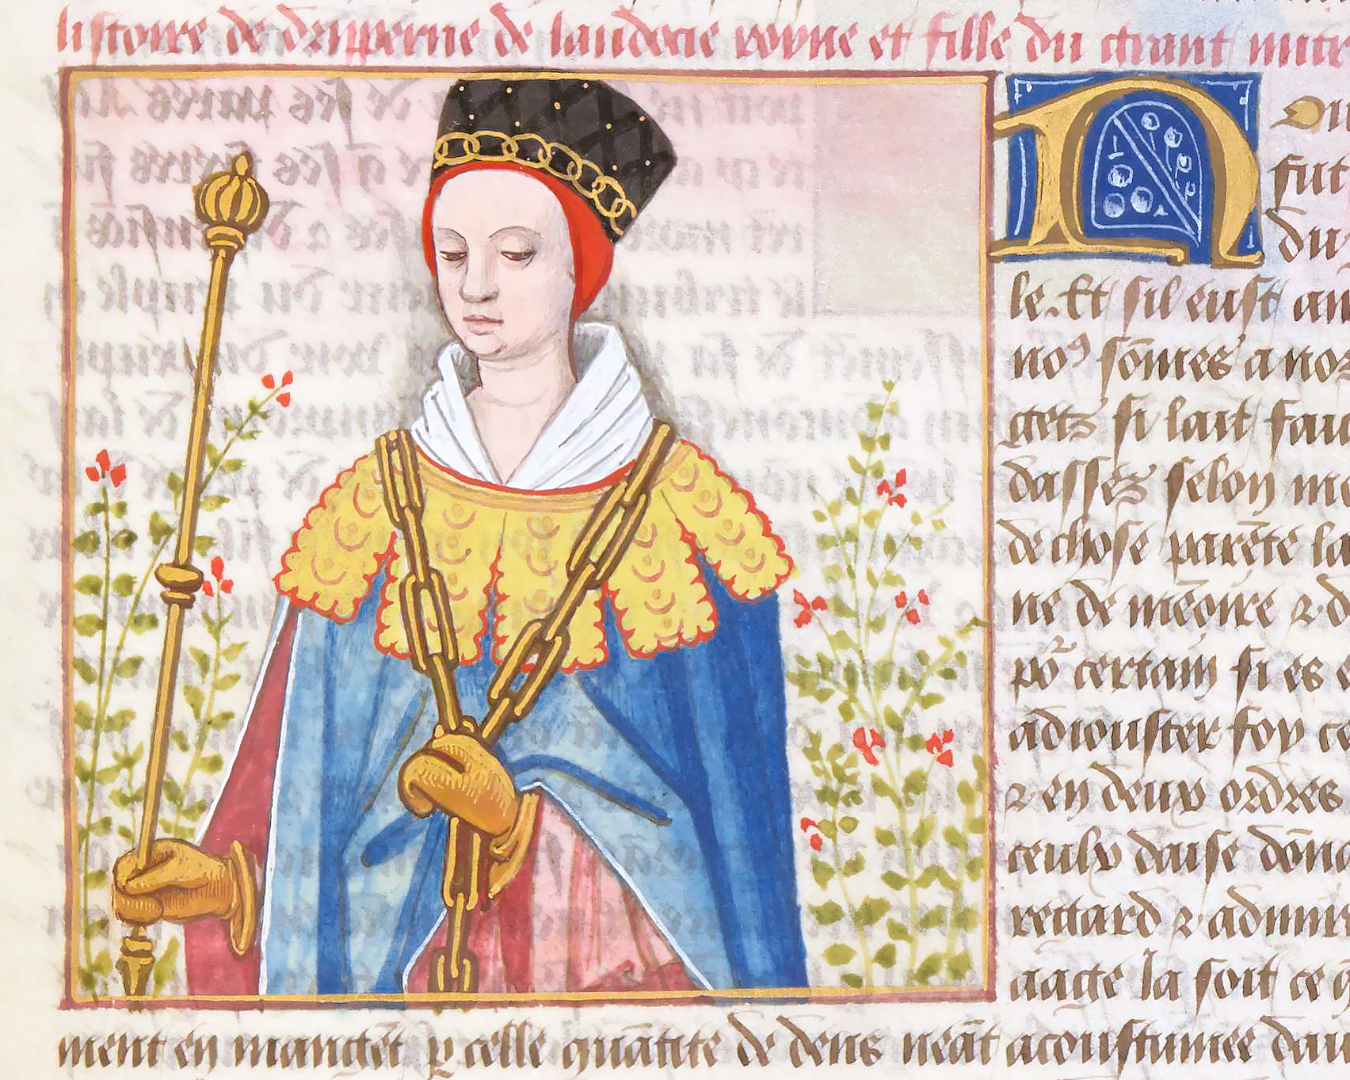 listoire de dripperne de laudocie royne et fille du grant mitr
Ou
fut
du
le. Et sil eust an
noꝰ sōmes a noz
getz si lait fau
dassez selon me
de chose parēte la
ne de mēoire ⁊ d
pō certain si es e
adiouster foy ce
⁊ en deux ordres
ceulx daise dōnc
regard ⁊ admir
aage la soit ce q
ment en mangēt p celle quātite de dens neāt acoustumee dau